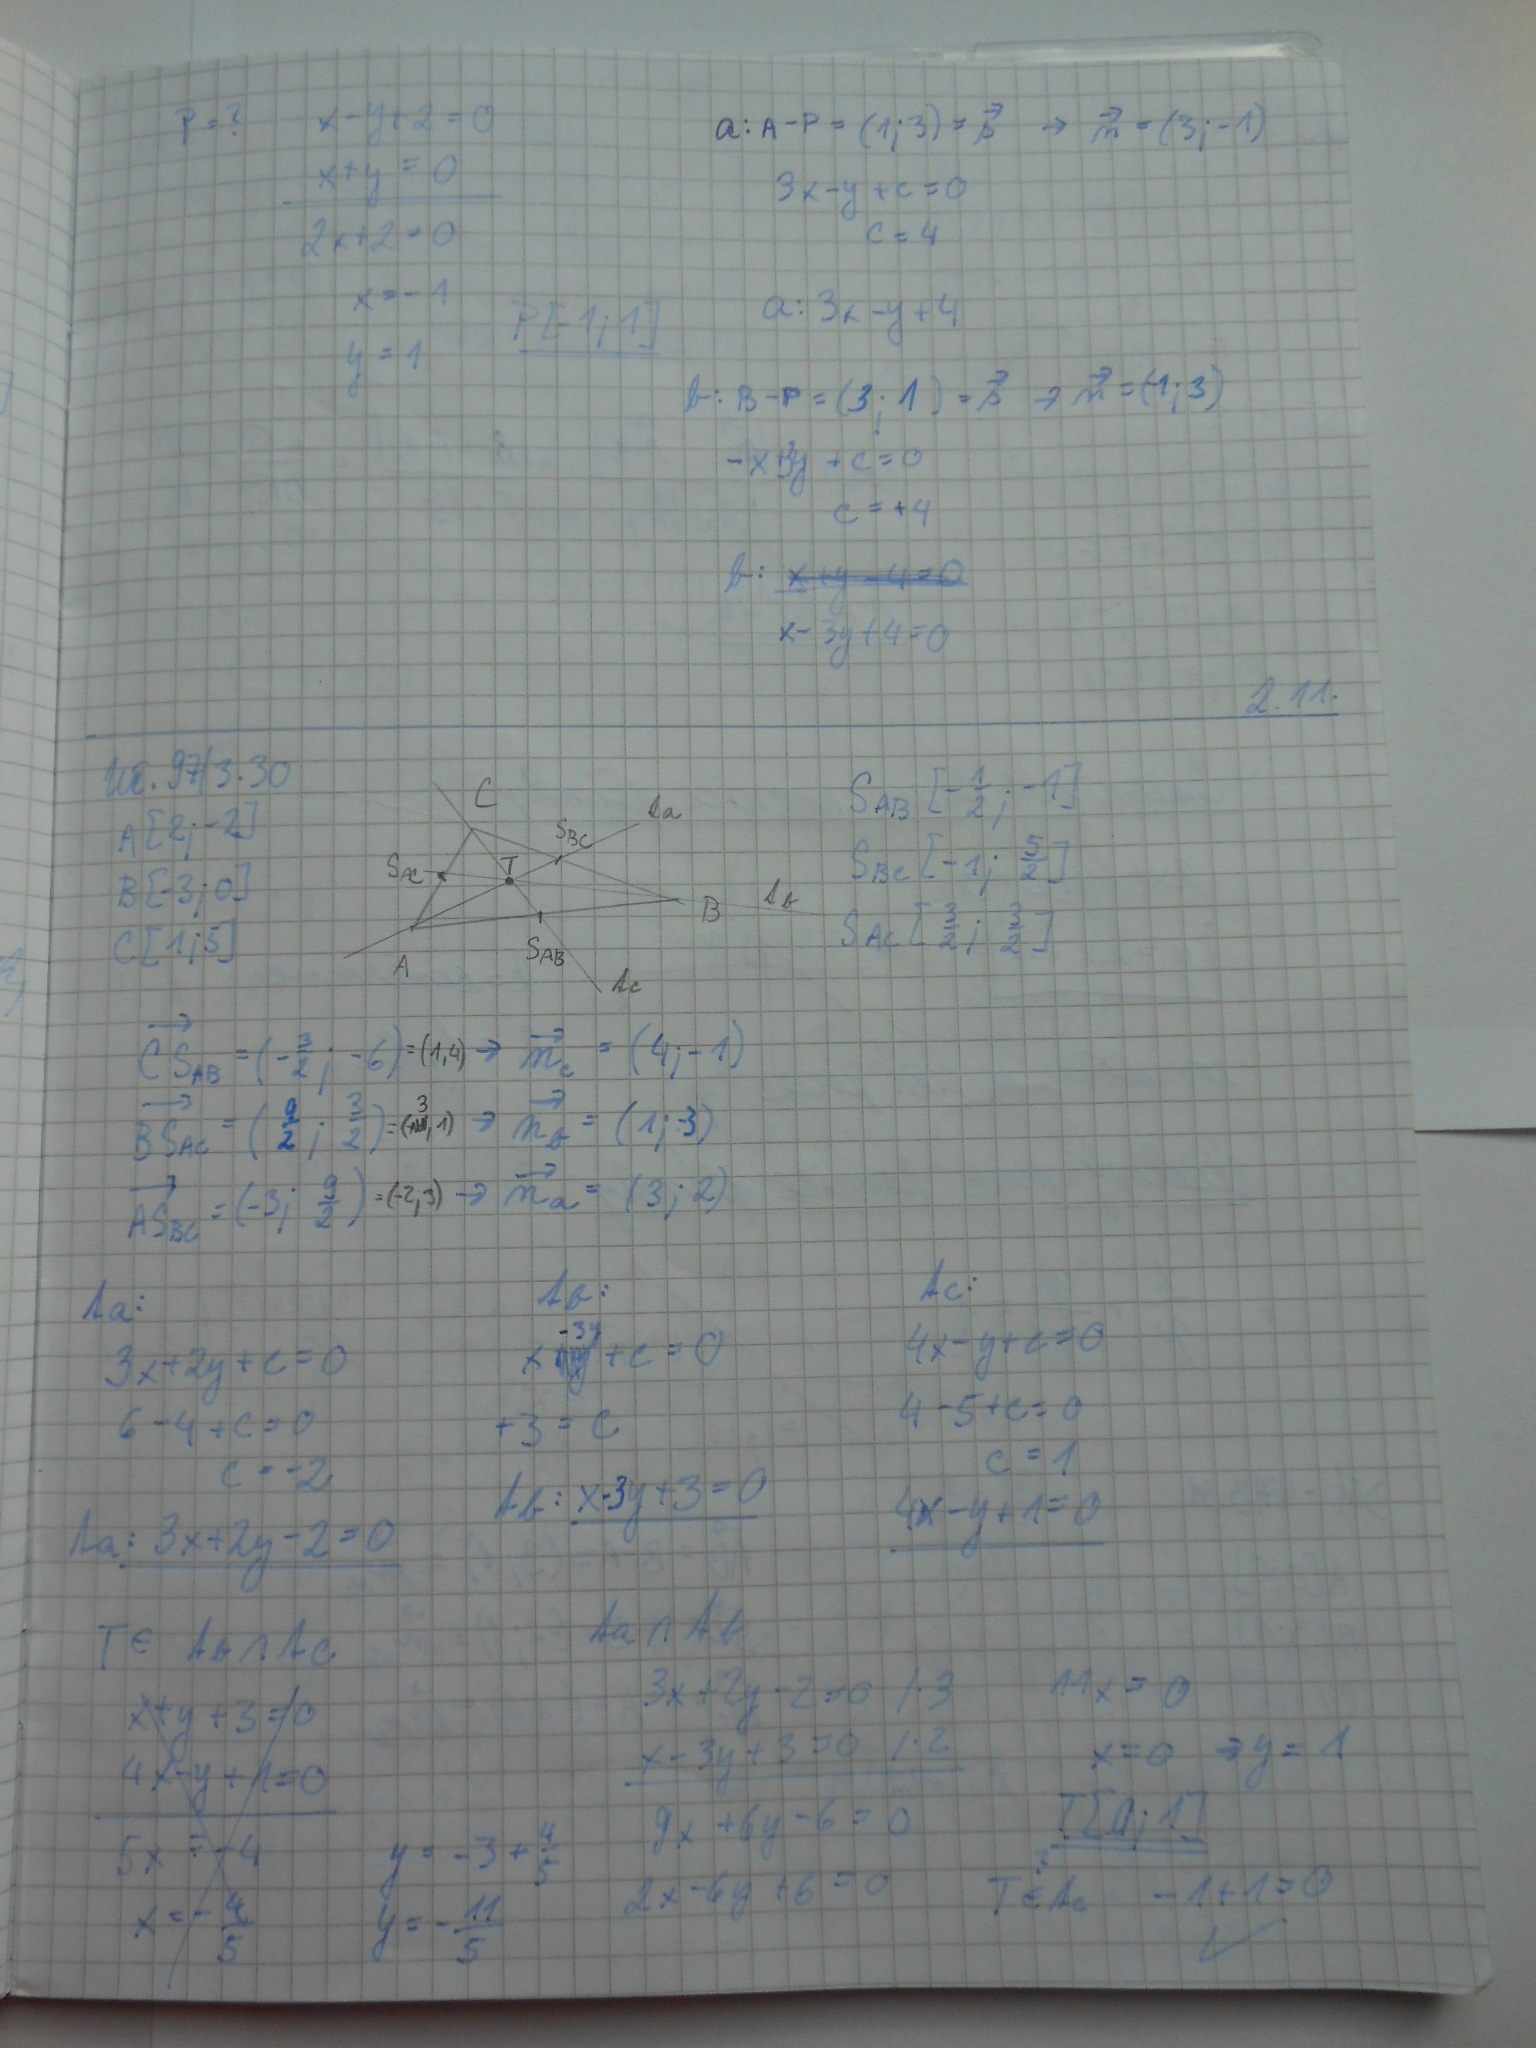 P=? x-y+2=0
x+y=0
2x+2=0
x=-1
P[-1;1]
y=1
a: A-P=(1;3)=s⃗ → n⃗=(3;-1)
3x-y+c=0
c=4
a: 3x-y+4
b: B-P=(3;1)=s⃗ → n⃗=(-1;3)
-x+3y+c=0
c=+4
b: x+y-4=0
x-3y+4=0
2.11.
uč. 97/3.30
A[2;-2]
B[-3;0]
C[1;5]
C
S_BC
t_a
S_AC
T
B
t_b
A
S_AB
t_c
S_AB[-1/2;-1]
S_BC[-1;5/2]
S_AC[3/2;3/2]
CS_AB=(-3/2;-6)=(1,4)→n⃗_c=(4;-1)
BS_AC=(9/2;3/2)=(3,1)→n⃗_b=(1;-3)
AS_BC=(-3;9/2)=(-2,3)→n⃗_a=(3;2)
t_a:
3x+2y+c=0
6-4+c=0
c=-2
t_a: 3x+2y-2=0
t_b:
x-3y+c=0
+3=c
t_b: x-3y+3=0
t_c:
4x-y+c=0
4-5+c=0
c=1
4x-y+1=0
T∈ t_b∩t_c
x+y+3=0
4x-y+1=0
5x=-4
x=-4/5
y=-3+4/5
y=-11/5
t_a∩t_b
3x+2y-2=0 /·3
x-3y+3=0 /·2
9x+6y-6=0
2x-6y+6=0
11x=0
x=0 →y=1
T[0;1]
T∈t_c -1+1=0